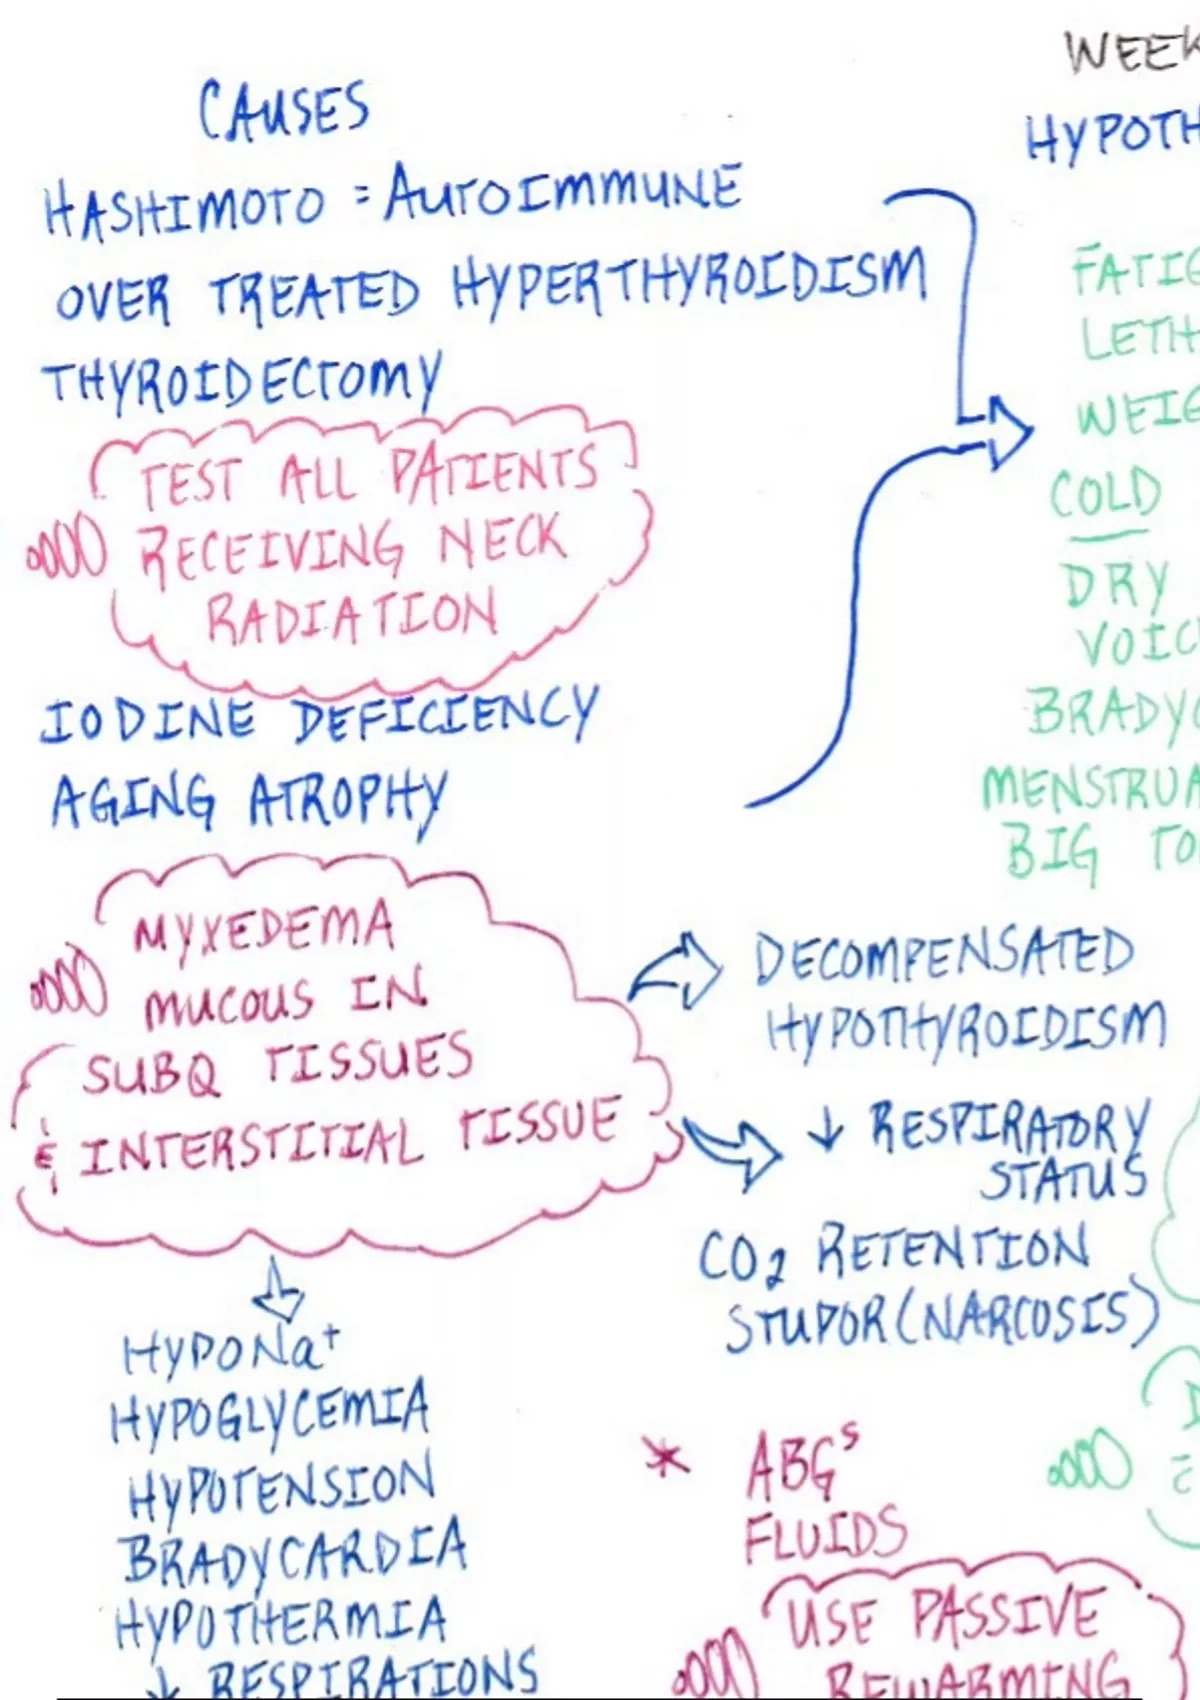 CAUSES
HASHIMOTO = AUTOIMMUNE
OVER TREATED HYPERTHYROIDISM
THYROIDECTOMY
TEST ALL PATIENTS
RECEIVING NECK
RADIATION
IODINE DEFICIENCY
AGING ATROPHY
WEEK
HYPOTH
FATIG
LETH
WEIG
COLD
DRY
VOIC
BRADYC
MENSTRUA
BIG TO
MYXEDEMA
MUCOUS IN
SUBQ TISSUES
& INTERSTITIAL TISSUE
DECOMPENSATED
HYPOTHYROIDISM
↓ RESPIRATORY
STATUS
CO2 RETENTION
STUPOR (NARCOSIS)
HYPONa+
HYPOGLYCEMIA
HYPOTENSION
BRADYCARDIA
HYPOTHERMIA
↓ RESPIRATIONS
* ABGS
FLUIDS
USE PASSIVE
REWARMING